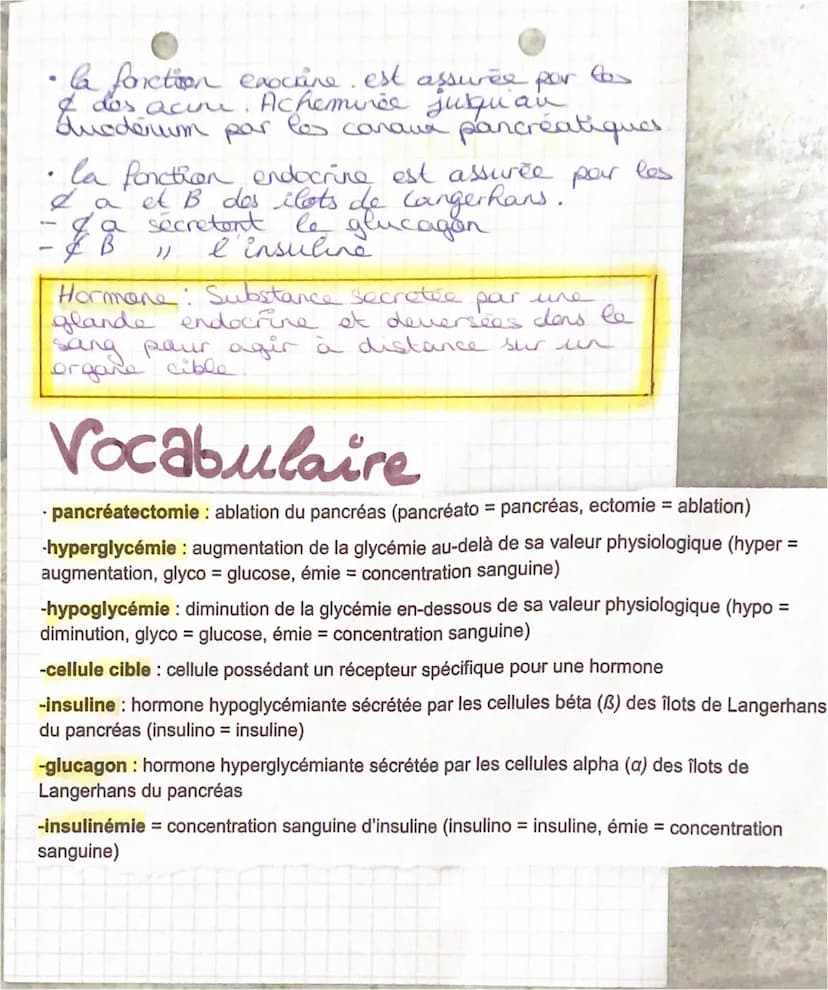 • la fonction exocrine est assurée par les
¢ des acini. Acheminée jusqu'au
duodénum par les canaux pancréatiques.
• la fonction endocrine est assurée par les
¢ a et B des îlots de Langerhans.
- ¢ a sécrètent le glucagon
- ¢ B " l'insuline
Hormone : Substance secretée par une
glande endocrine et deversées dans le
sang pour agir à distance sur un
organe cible.
Vocabulaire
· pancréatectomie : ablation du pancréas (pancréato = pancréas, ectomie = ablation)
-hyperglycémie : augmentation de la glycémie au-delà de sa valeur physiologique (hyper =
augmentation, glyco = glucose, émie = concentration sanguine)
-hypoglycémie : diminution de la glycémie en-dessous de sa valeur physiologique (hypo =
diminution, glyco = glucose, émie = concentration sanguine)
-cellule cible : cellule possédant un récepteur spécifique pour une hormone
-insuline : hormone hypoglycémiante sécrétée par les cellules béta (ß) des îlots de Langerhans
du pancréas (insulino = insuline)
-glucagon : hormone hyperglycémiante sécrétée par les cellules alpha (α) des îlots de
Langerhans du pancréas
-insulinémie = concentration sanguine d'insuline (insulino = insuline, émie = concentration
sanguine)